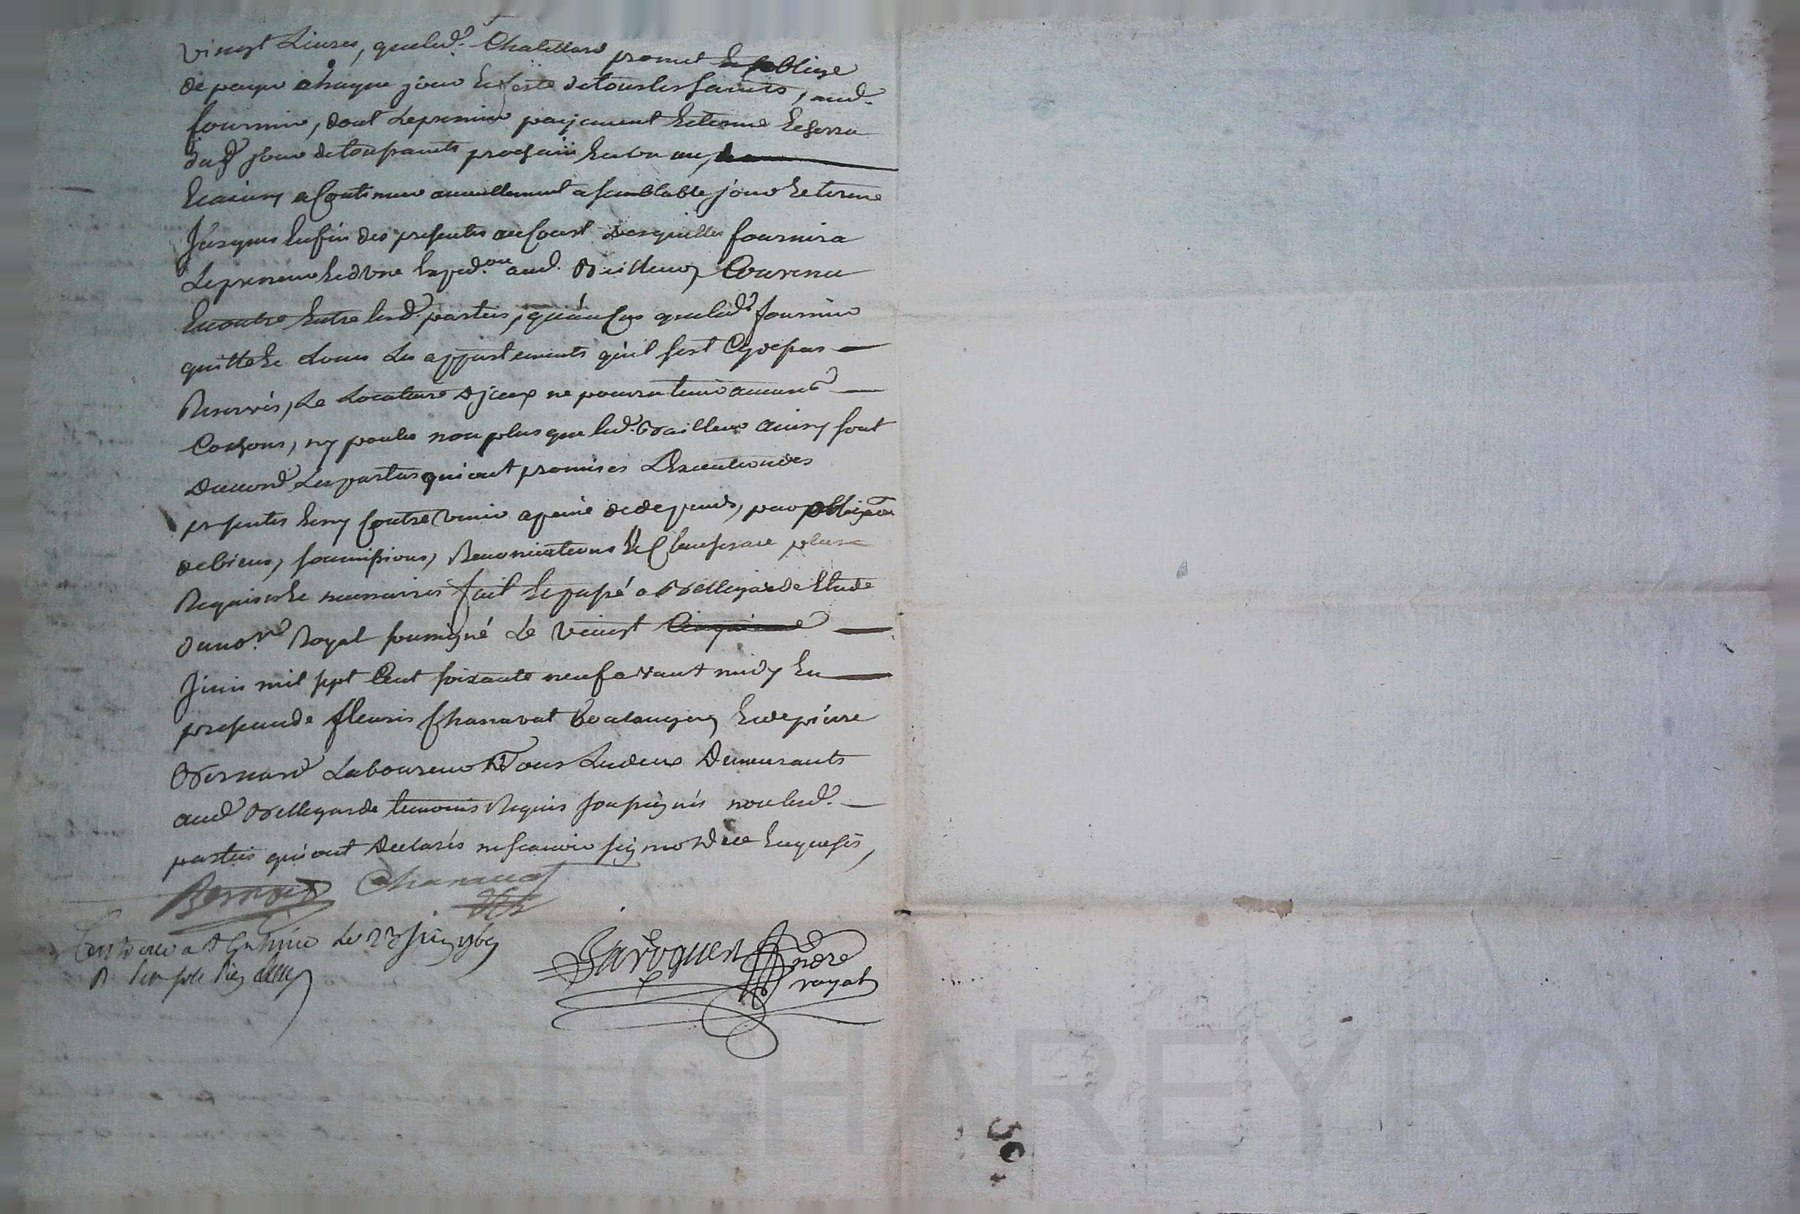 vingt Livres, queled.t Chatillard promet et s'oblige
de payer chaque jour et feste de tous les saincts, aud.
fournier, dont le premier payement et terme se ferra
dud.t jour de toussaints prochain en un an,
et ainsy a Continuer annuellement a semblable jour et terme
Jusques a la fin des presentes au Court desquelles fournira
Le preneur led. une exped.on aud. Bailleur, Convenu
En outre Entre lesd. parties, qu'au Cas queled.t fournier
quitte et Loue Les appartements qu'il sest Cy dessus
Reservés, Le Locataire d'jceux ne pourra tenir aucuns
Cochons, ny poules non plus que led. Bailleur ainsy sont
d'accord Les parties qui ont promises L'execution des
presentes et ny Contrevenir a peine de depends, par obligaon
de biens, soumissions, Renonciations et Clauses
Requises et necessaires fait et passé a Bellegarde Etude
du no.re Royal soussigné Le vingt
Juin mil sept Cent soixante neuf avant midy En
presence de fleuris Chanavat boulanger, et de pierre
Bernard Laboureur Tous Les deux Demeurants
aud. Bellegarde temoins Requis soussignés non lesd.
parties qui ont declarés ne scavoir signer de ce Enquises,
Bernard Chanavat
Le 22 Juin 1769
Laroque Nore
royal
CHAREYRON